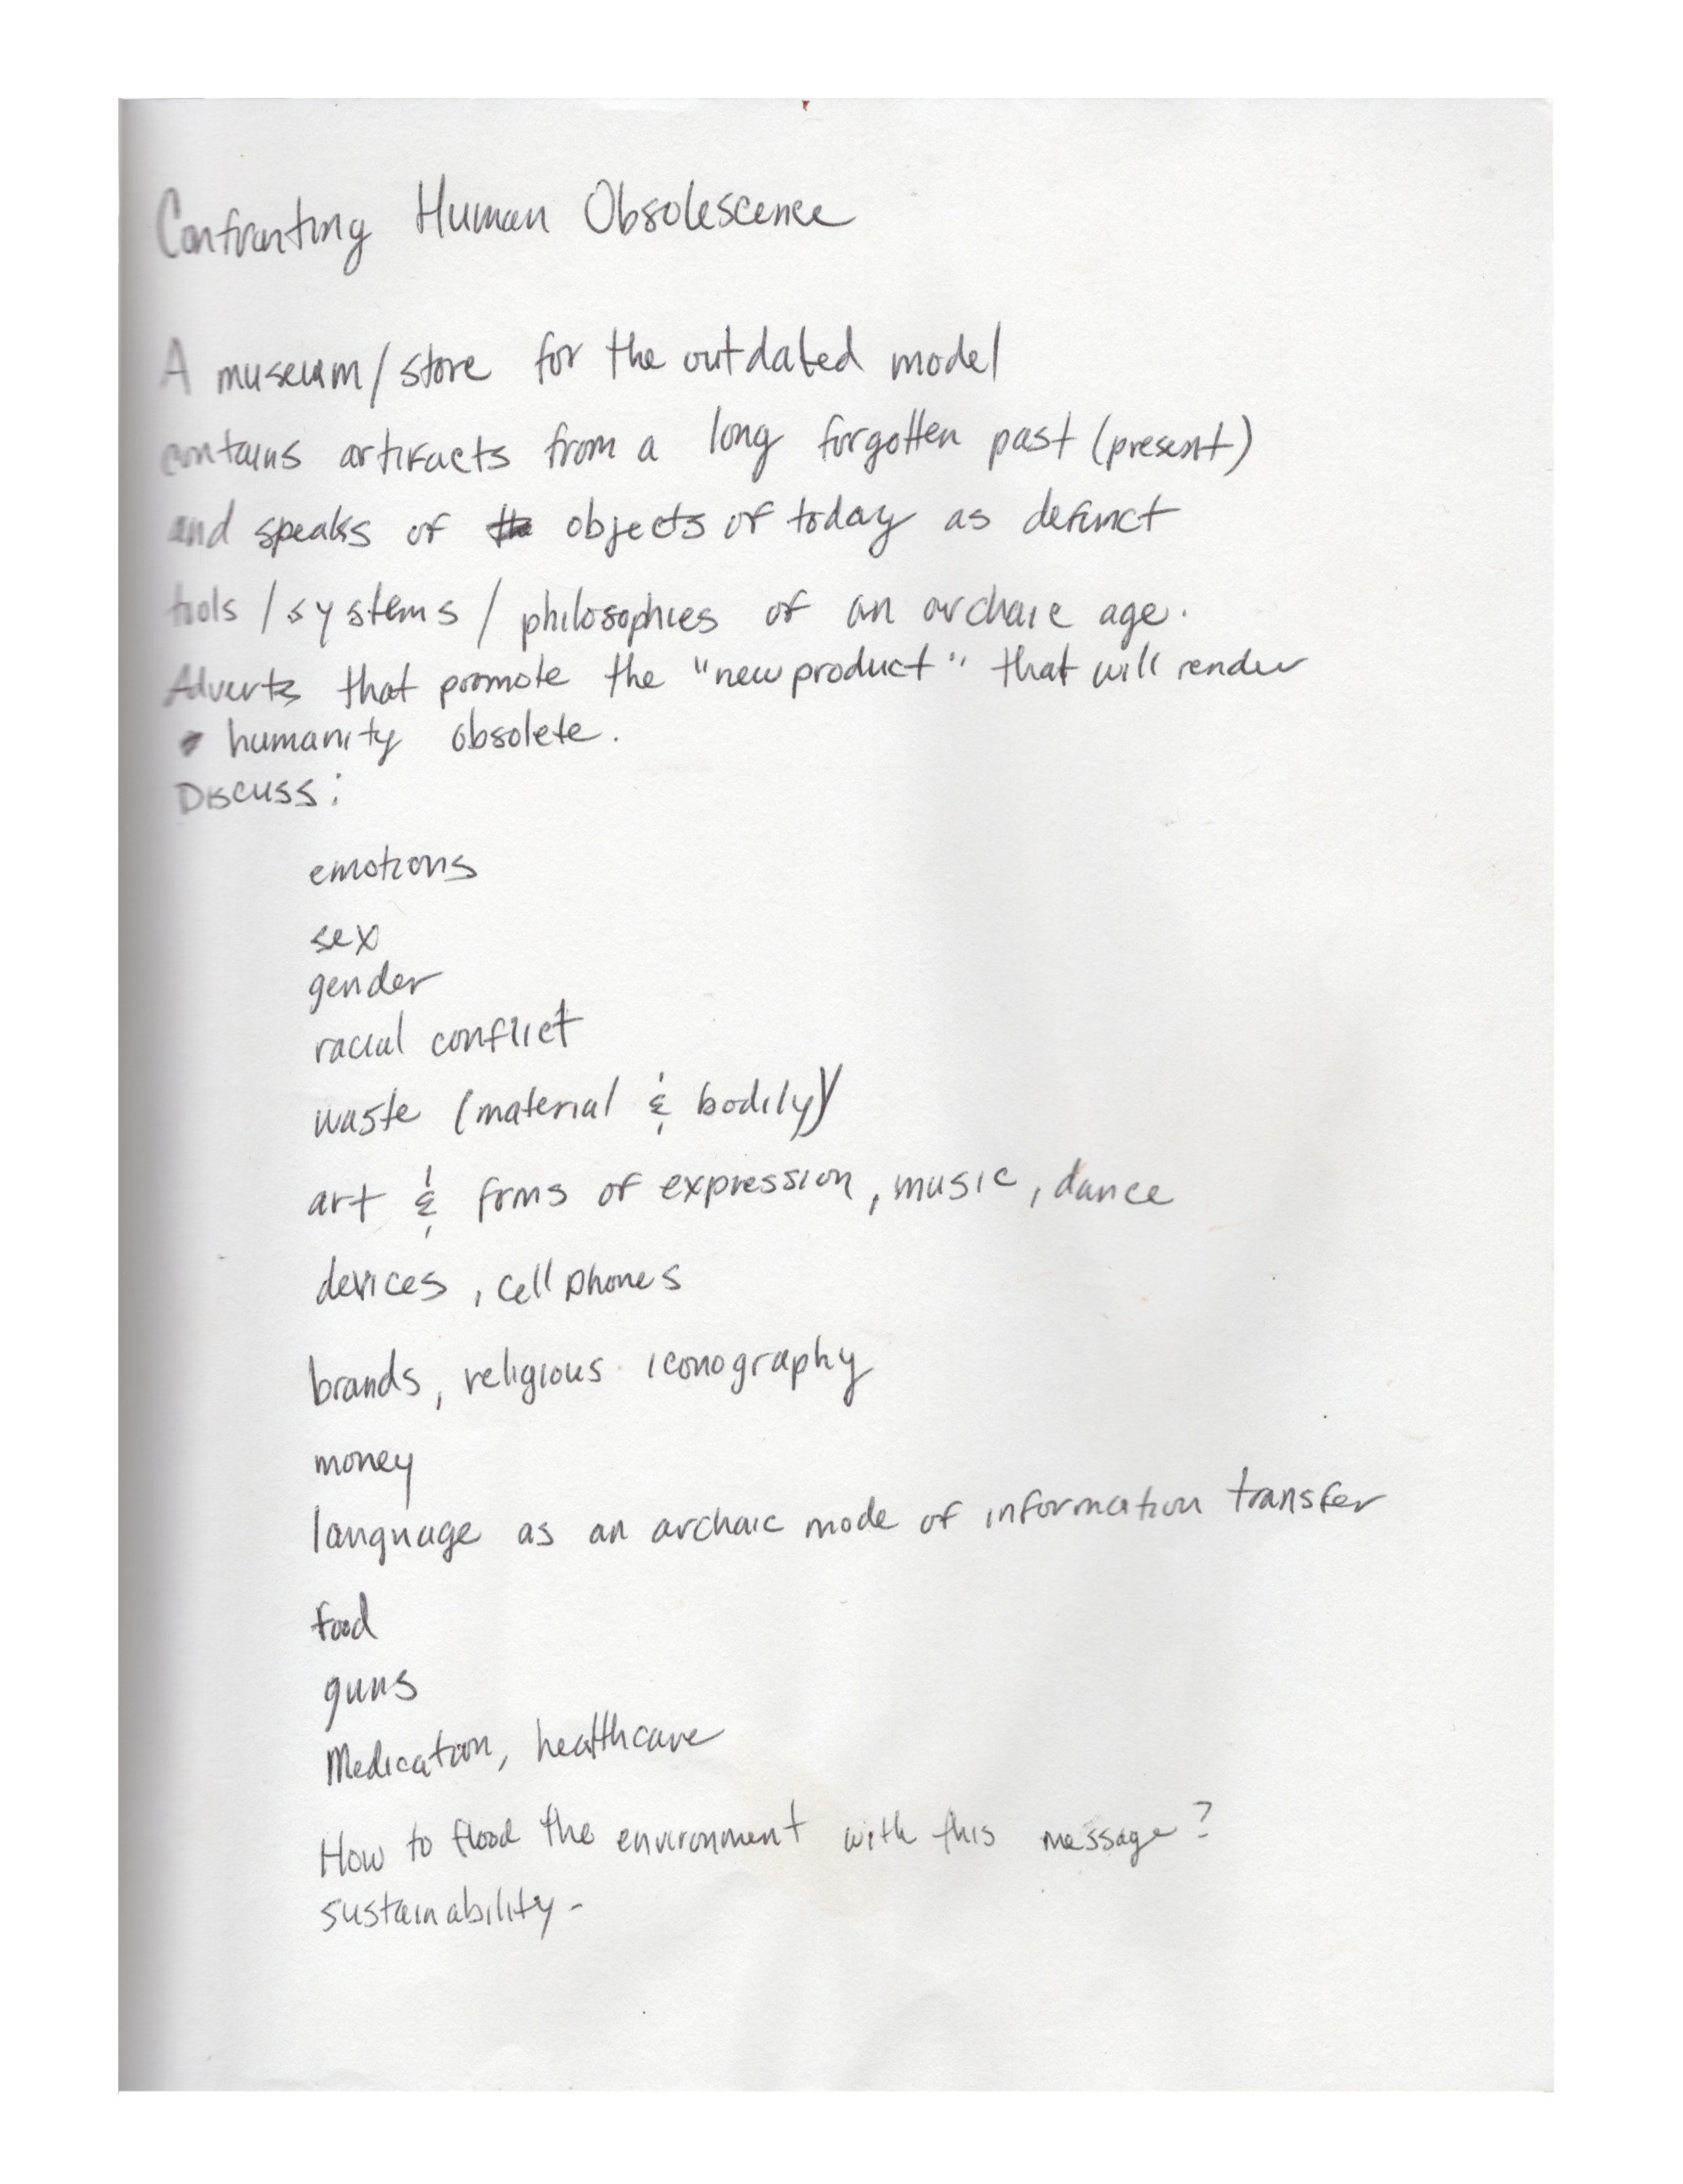 Confronting Human Obsolescence
A museum/store for the outdated model
contains artifacts from a long forgotten past (present)
and speaks of the objects of today as defunct
tools / systems / philosophies of an archaic age.
Adverts that promote the "new product" that will render
humanity obsolete.
Discuss:
emotions
sex
gender
racial conflict
waste (material & bodily)
art & forms of expression, music, dance
devices, cell phones
brands, religious iconography
money
language as an archaic mode of information transfer
food
guns
Medication, healthcare
How to flood the environment with this message?
sustainability -